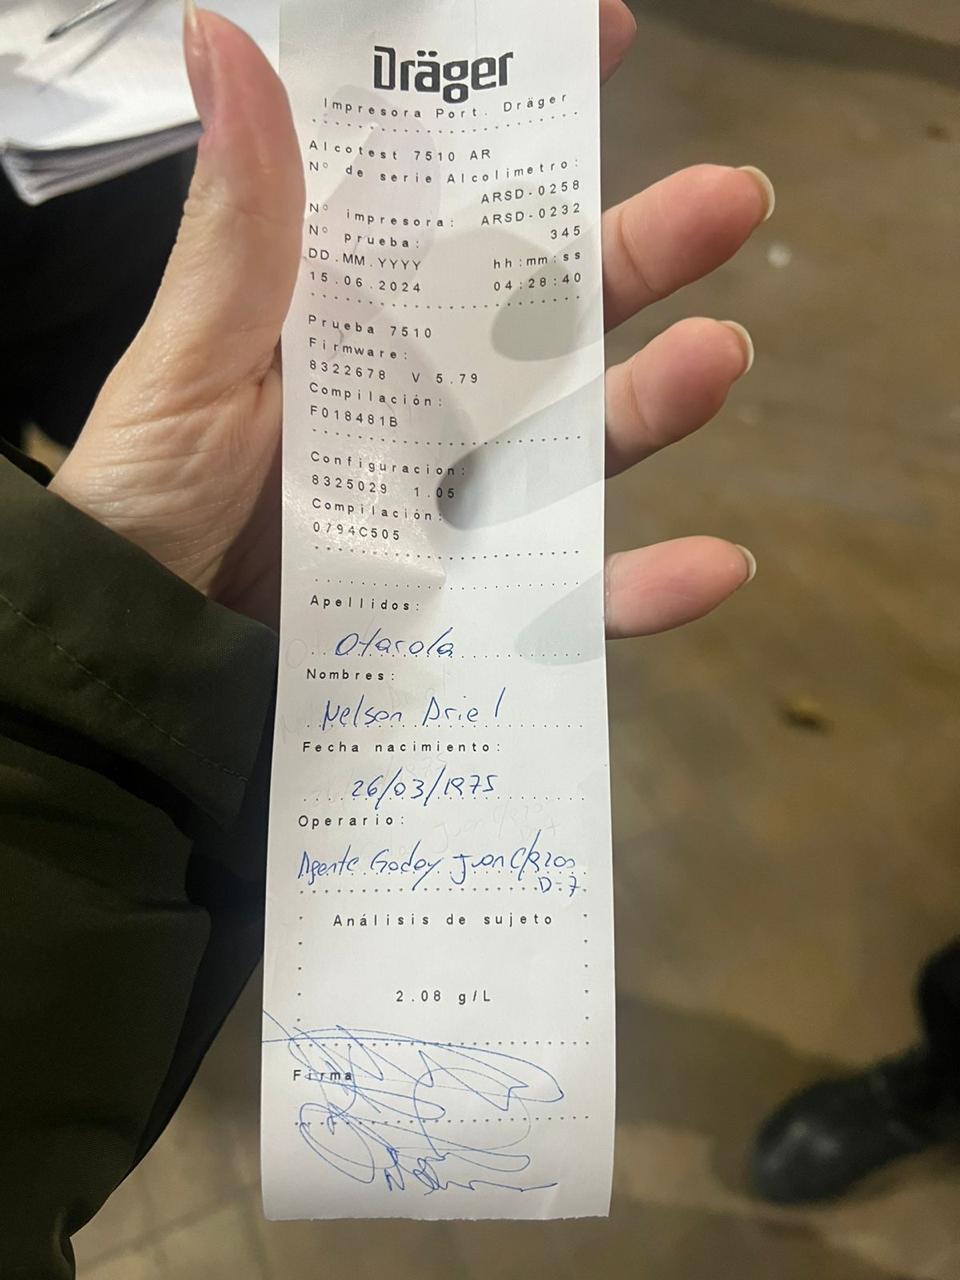 Dräger
Impresora Port. Dräger
Alcotest 7510 AR
N° de serie Alcolimetro:
ARSD-0258
N° impresora: ARSD-0232
N° Prueba: 345
DD.MM.YYYY hh:mm:ss
15.06.2024 04:28:40
Prueba 7510
Firmware:
8322678 V 5.79
Compilación:
F018481B
Configuracion:
8325029 1.05
Compilación:
0794C505
Apellidos:
Otarola
Nombres:
Nelson Ariel
Fecha nacimiento:
26/03/1975
Operario:
Agente Godoy Juan Carlos
D-7
Análisis de sujeto
2.08 g/L
Firma